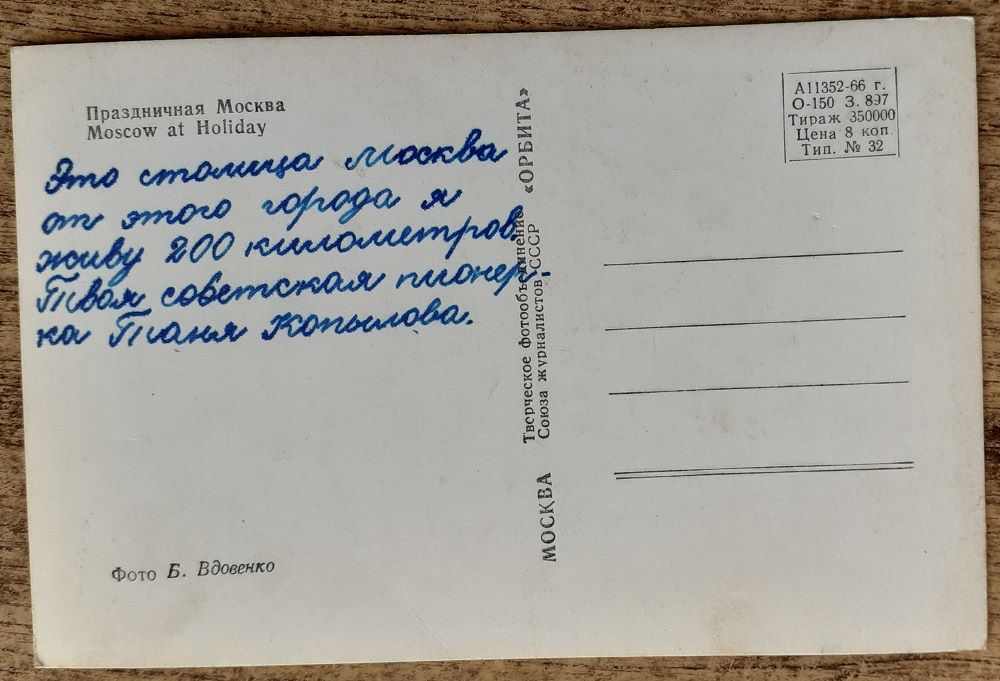 Праздничная Москва
Moscow at Holiday
Это столица Москва
от этого города я
живу 200 километров.
Твоя советская пионер-
ка Таня Копылова.
Фото Б. Вдовенко
МОСКВА
Творческое фотообъединение «ОРБИТА»
Союза журналистов СССР
А11352-66 г.
О-150 З. 897
Тираж 350000
Цена 8 коп.
Тип. № 32